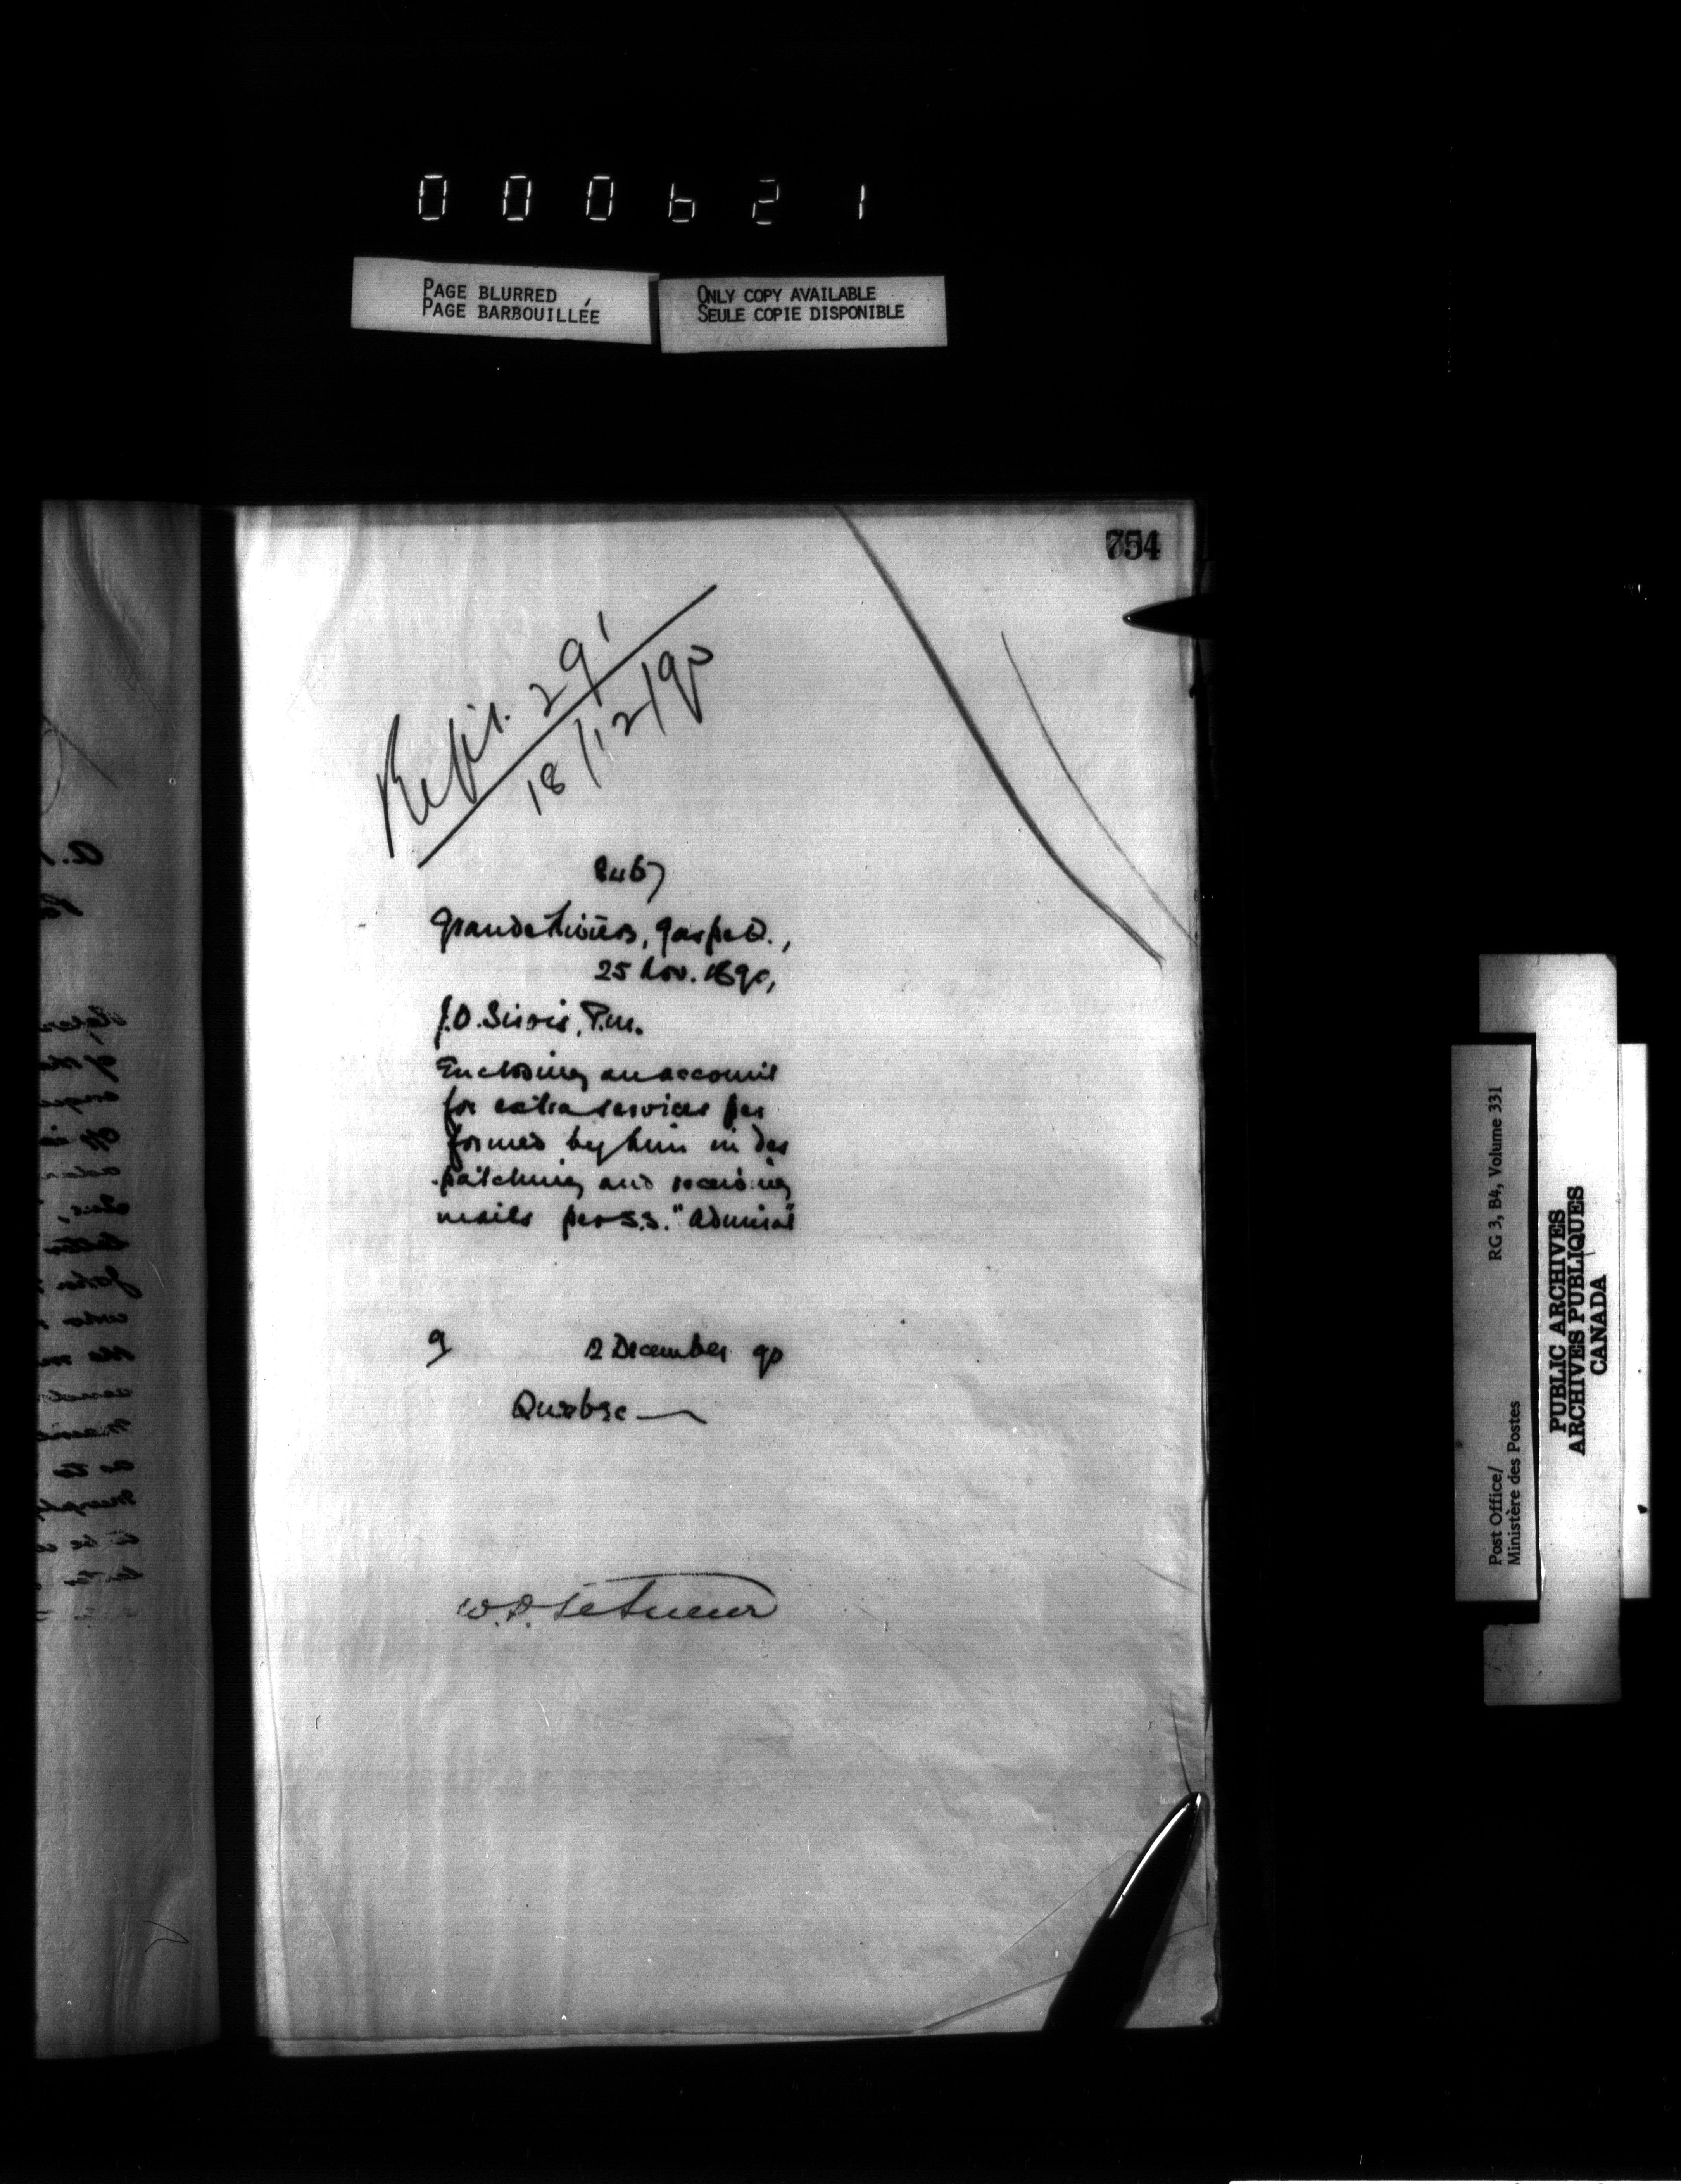 000621
PAGE BLURRED
PAGE BARBOUILLÉE
ONLY COPY AVAILABLE
SEULE COPIE DISPONIBLE
754
291
18/12/90
Grande Rivière, Gaspe Q.,
25 Nov. 1890,
J.O. Sirois, P.M.
Enclosing an account
for extra services per
formed by him in des
patching and receiving
mails per S.S. "Admiral"
9 12 December 90
Quebec
W.D. LeSueur
Post Office/ RG 3, B4, Volume 331
Ministère des Postes
PUBLIC ARCHIVES
ARCHIVES PUBLIQUES
CANADA